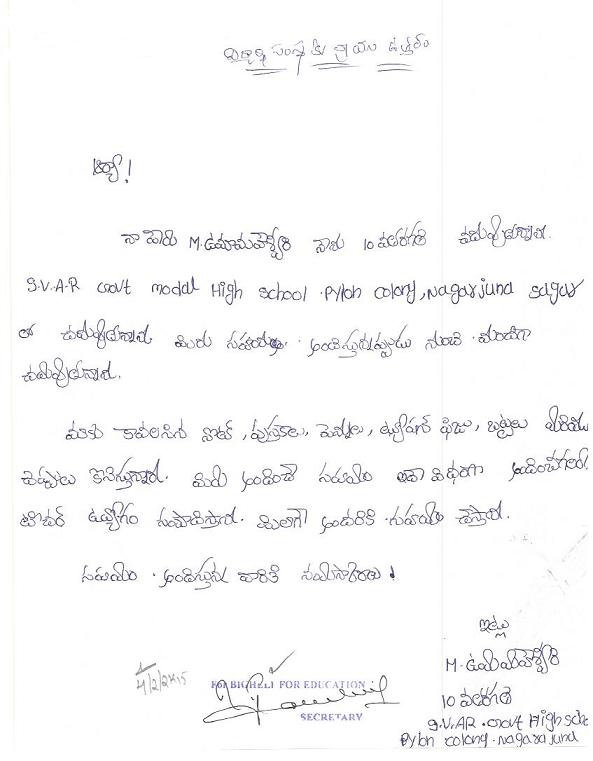 విద్యార్థి సంస్థ కు వ్రాయు ఉత్తరం
అయ్యా!
నా పేరు M. ఉమామహేశ్వేరి నాను 10 వతరగతి చదువుతున్నాను.
S.V.A.R Govt modal High school .Pylon colony, Nagarjuna sagar
లో చదువుతున్నాను మీరు సహయం . అందిస్తున్నప్పుడు నుంచి మంచిగా
చదువుతున్నాను.
మాకు కావలసిన నోట్ , పుస్తకాలు, పెన్నులు, ట్యూషన్ ఫిజు, బట్టలు మరియు
చెప్పులు కొనిస్తున్నారు. మీరు అందించే సహయం ఇదే విధంగా అందించగలరు.
టిచర్ ఉద్యోగం సంపాదిస్తాను. మీలాగే అందరికి సహయం చేస్తాను.
సహయం . అందిస్తున్న వారికి నమస్కారాలు !
ఇట్లు
M. ఉమామహేశ్వేరి
10 వతరగతి
S.V.AR .Govt High sch
Pylon colony .Nagarajuna
4/2/2015
For BIGHELI FOR EDUCATION
SECRETARY